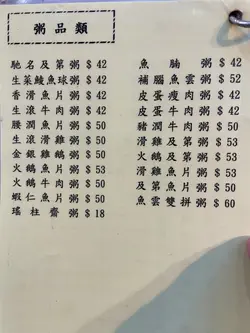 粥品類
馳名及第粥 $ 42
生菜鯪魚球粥 $ 42
香滑魚片粥 $ 42
生滾牛肉粥 $ 42
腰潤魚片粥 $ 50
生滾滑雞粥 $ 50
金銀雞鵝粥 $ 50
火鵝魚片粥 $ 53
火鵝牛肉粥 $ 50
蝦仁魚片粥 $ 50
瑤柱齋粥 $ 18
魚腩粥 $ 42
補腦魚雲粥 $ 52
皮蛋瘦肉粥 $ 42
皮蛋牛肉粥 $ 42
豬潤牛肉粥 $ 50
滑雞及第粥 $ 53
火鵝及第粥 $ 53
滑雞魚片粥 $ 53
及第魚片粥 $ 50
魚雲雙拼粥 $ 60